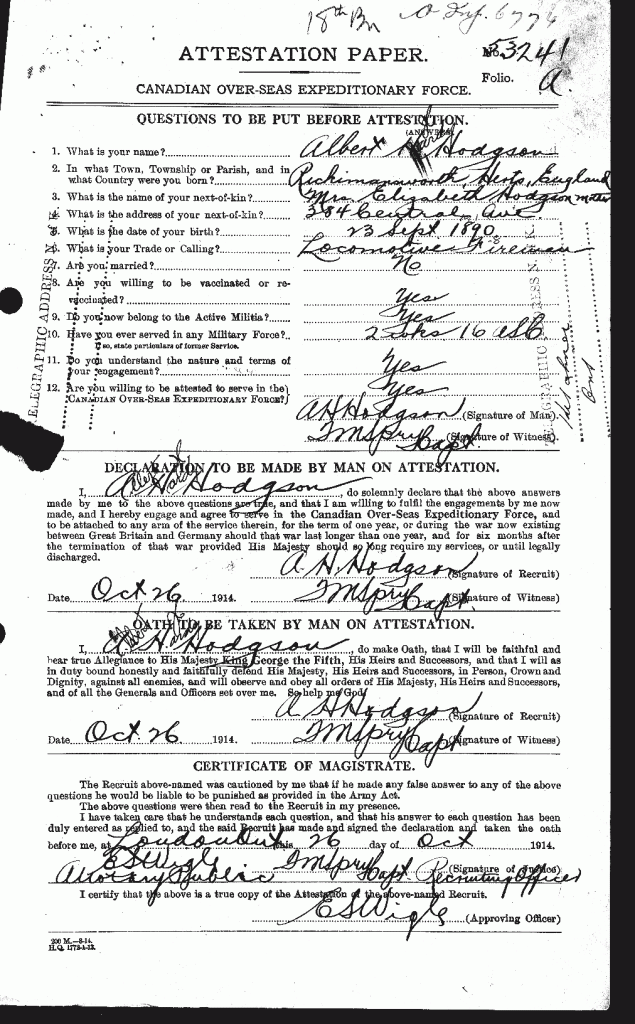 18th Bn
ATTESTATION PAPER.
No. 53241
Folio. A.
CANADIAN OVER-SEAS EXPEDITIONARY FORCE.
QUESTIONS TO BE PUT BEFORE ATTESTATION.
(ANSWERS)
1. What is your name? Albert H. Hodgson
2. In what Town, Township or Parish, and in
what Country were you born? Rickmansworth, Herts, England
3. What is the name of your next-of-kin? Mrs. Elizabeth Hodgson mother
4. What is the address of your next-of-kin? 384 Central Ave.
5. What is the date of your birth? 23 Sept 1890
6. What is your Trade or Calling? Locomotive Fireman
7. Are you married? No
8. Are you willing to be vaccinated or re-
vaccinated? Yes
9. Do you now belong to the Active Militia? Yes
10. Have you ever served in any Military Force? 2 wks 16 ASC
If so, state particulars of former Service.
11. Do you understand the nature and terms of
your engagement? Yes
12. Are you willing to be attested to serve in the
CANADIAN OVER-SEAS EXPEDITIONARY FORCE? Yes
A H Hodgson (Signature of Man).
T M Spry Capt. (Signature of Witness).
TELEGRAPHIC ADDRESS N
TELEGRAPHIC ADDRESS N. K.
Ont
DECLARATION TO BE MADE BY MAN ON ATTESTATION.
I, A H Hodgson, do solemnly declare that the above answers
made by me to the above questions are true, and that I am willing to fulfil the engagements by me now
made, and I hereby engage and agree to serve in the Canadian Over-Seas Expeditionary Force, and
to be attached to any arm of the service therein, for the term of one year, or during the war now existing
between Great Britain and Germany should that war last longer than one year, and for six months after
the termination of that war provided His Majesty should so long require my services, or until legally
discharged.
A. H. Hodgson (Signature of Recruit)
Date Oct 26 1914. T M Spry Capt. (Signature of Witness)
OATH TO BE TAKEN BY MAN ON ATTESTATION.
I, A. H. Hodgson, do make Oath, that I will be faithful and
bear true Allegiance to His Majesty King George the Fifth, His Heirs and Successors, and that I will as
in duty bound honestly and faithfully defend His Majesty, His Heirs and Successors, in Person, Crown and
Dignity, against all enemies, and will observe and obey all orders of His Majesty, His Heirs and Successors,
and of all the Generals and Officers set over me. So help me God.
A H Hodgson (Signature of Recruit)
Date Oct 26 1914. T M Spry Capt (Signature of Witness)
CERTIFICATE OF MAGISTRATE.
The Recruit above-named was cautioned by me that if he made any false answer to any of the above
questions he would be liable to be punished as provided in the Army Act.
The above questions were then read to the Recruit in my presence.
I have taken care that he understands each question, and that his answer to each question has been
duly entered as replied to, and the said Recruit has made and signed the declaration and taken the oath
before me, at London Ont this 26 day of Oct 1914.
E S Wigle T M Spry Capt Recruiting Officer (Signature of Justice)
A Notary Public
I certify that the above is a true copy of the Attestation of the above-named Recruit.
E S Wigle (Approving Officer)
200 M.—8-14.
H.Q. 1772-4-13.